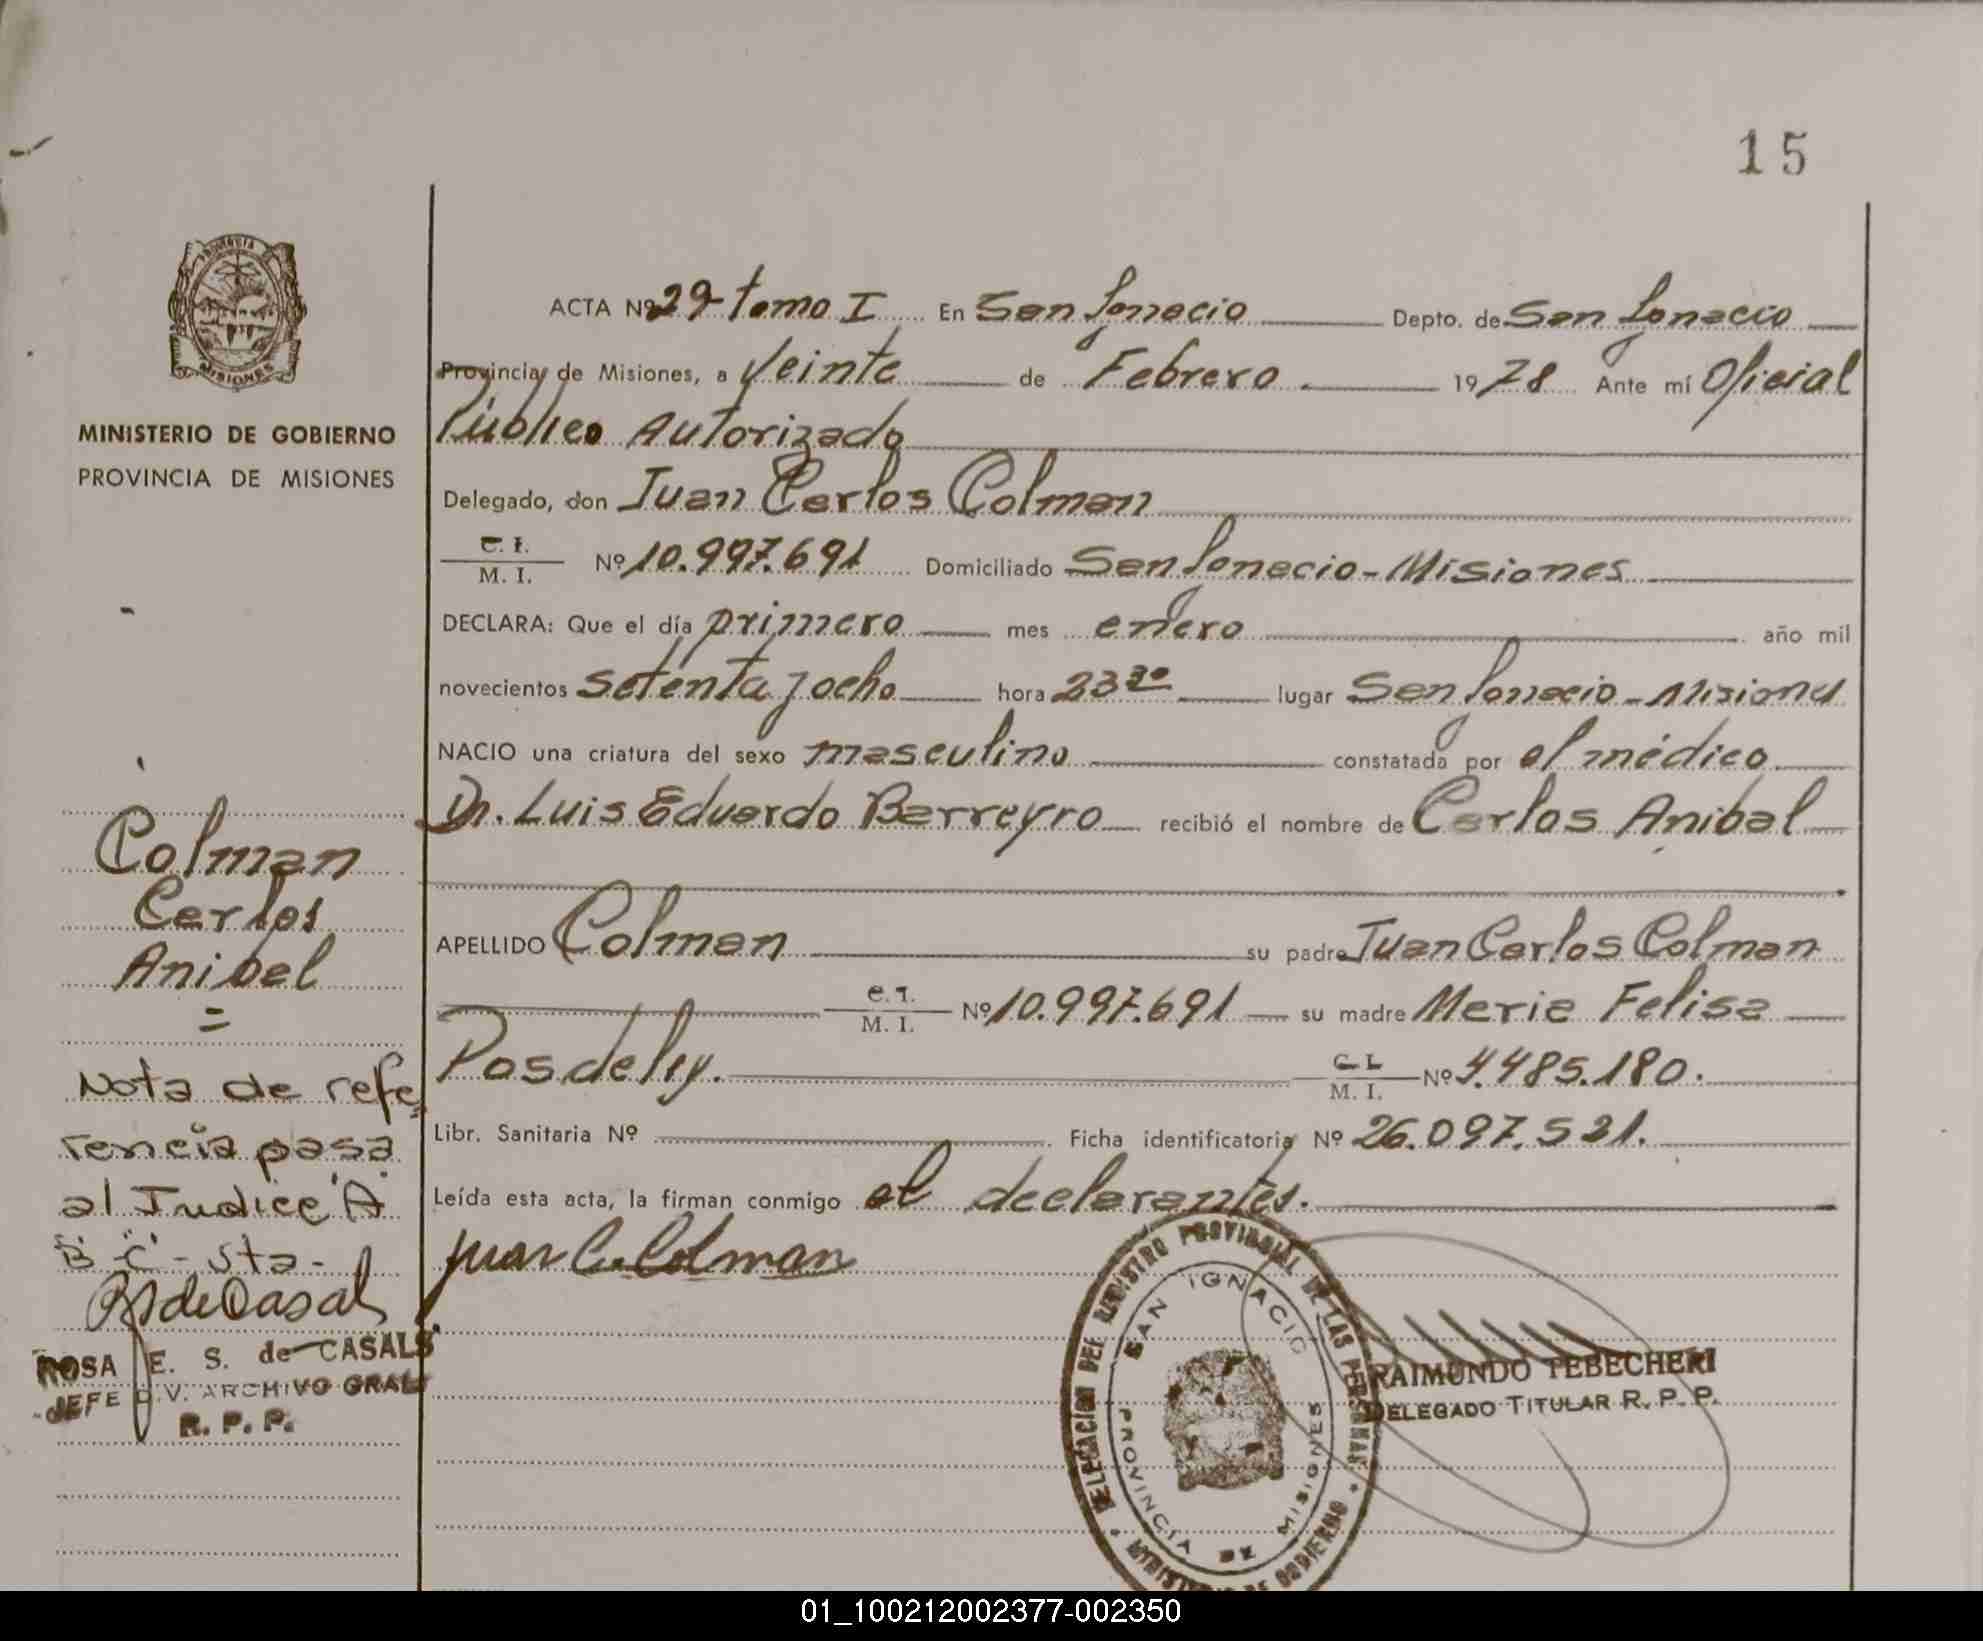 15
PROVINCIA
MISIONES
MINISTERIO DE GOBIERNO
PROVINCIA DE MISIONES
ACTA Nº 29- tomo I En San Ignacio Depto. de San Ignacio
Provincia de Misiones, a Veinte de Febrero 1978 Ante mí Oficial
Público Autorizado
Delegado, don Juan Carlos Colman
C. I.
M. I. Nº 10.997.691 Domiciliado San Ignacio - Misiones
DECLARA: Que el día primero mes enero año mil
novecientos setenta y ocho hora 23 30 lugar San Ignacio - Misiones
NACIO una criatura del sexo masculino constatada por el médico
Dr. Luis Eduardo Barreyro recibió el nombre de Carlos Anibal
APELLIDO Colman su padre Juan Carlos Colman
C. I.
M. I. Nº 10.997.691 su madre Maria Felisa
Posdeley. C. I.
M. I. Nº 4.485.180.
Libr. Sanitaria Nº Ficha identificatoria Nº 26.097.521.
Leída esta acta, la firman conmigo el declarantes.
Juan C. Colman
Colman
Carlos
Anibal
=
Nota de refe
rencia pasa
al Indice "A"
"B" "C" - sta -
RSdeCasals
ROSA E. S. de CASALS
JEFE DIV. ARCHIVO GRAL
R. P. P.
DELEGACIÓN DEL REGISTRO PROVINCIAL DE LAS PERSONAS
MINISTERIO DE GOBIERNO
SAN IGNACIO
PROVINCIA DE MISIONES
RAIMUNDO TEBECHERI
DELEGADO TITULAR R. P. P.
01_100212002377-002350